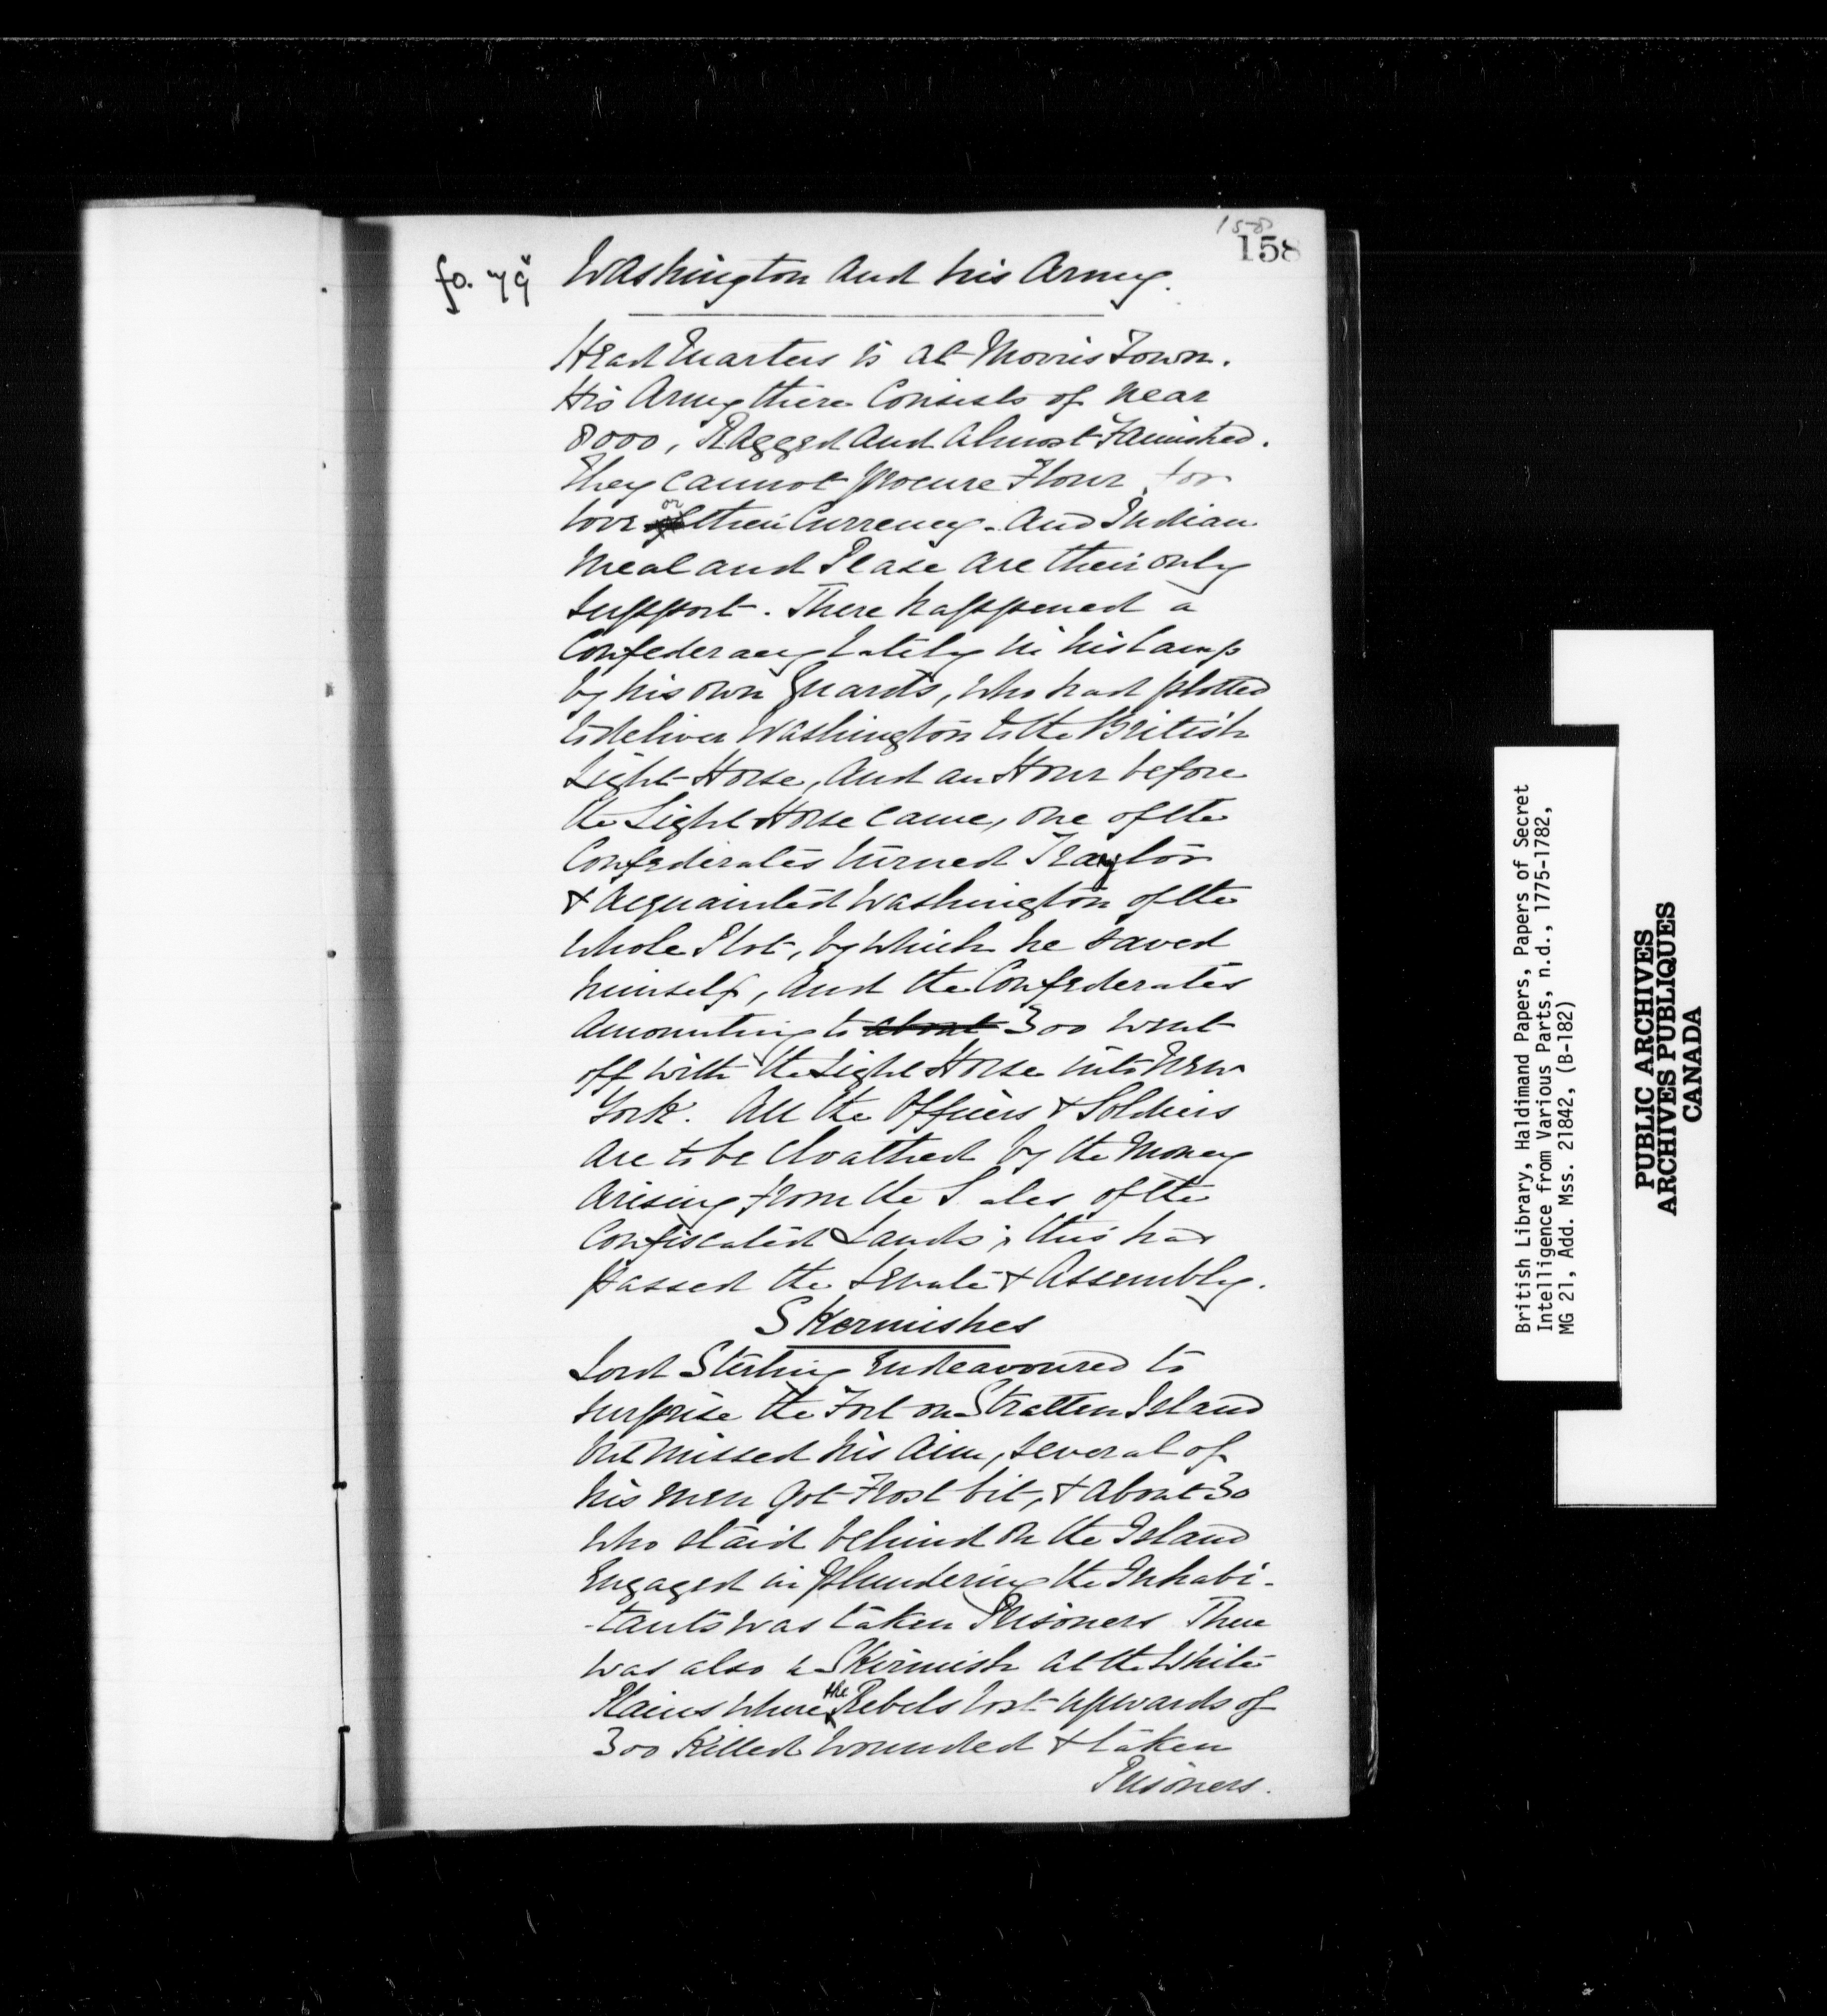 158
158
fo. 79
Washington and his Army.
Head Quarters is at Morris Town.
His Army there Consists of near
8000, Ragged and almost Famished.
They cannot procure Flour for
love or their Currency. And Indian
meal and Pease are their only
support. There happened a
Confederacy lately in his Camp
by his own Guards, who had plotted
to deliver Washington to the British
Light Horse, and an Hour before
the Light Horse came, one of the
Confederates turned Traytor
& acquainted Washington of the
whole Plot, by which he saved
himself, and the Confederates
amounting to about 300 went
off with the Light Horse into New
York. All the Officers & Soldiers
are to be Cloathed by the money
arising from the Sales of the
Confiscated Lands; this has
passed the Senate & Assembly.
Skermishes
Lord Sterling Endeavoured to
surprise the Fort on Stratten Island
but missed his aim, several of
his men got Frost bit, & about 30
who staid behind on the Island
Engaged in plundering the Inhabi-
-tants was taken Prisoners There
was also a Skirmish at the White
Plains where the Rebels lost upwards of
300 Killed wounded & taken
Prisoners.
British Library, Haldimand Papers, Papers of Secret
Intelligence from Various Parts, n.d., 1775-1782,
MG 21, Add. Mss. 21842, (B-182)
PUBLIC ARCHIVES
ARCHIVES PUBLIQUES
CANADA